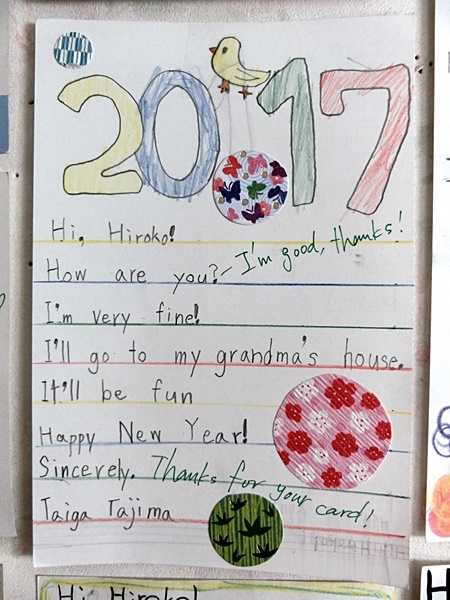 2017
Hi, Hiroko!
How are you? - I'm good, thanks!
I'm very fine!
I'll go to my grandma's house.
It'll be fun
Happy New Year!
Sincerely. Thanks for your card!
Taiga Tajima
Hi Hiroko!
H